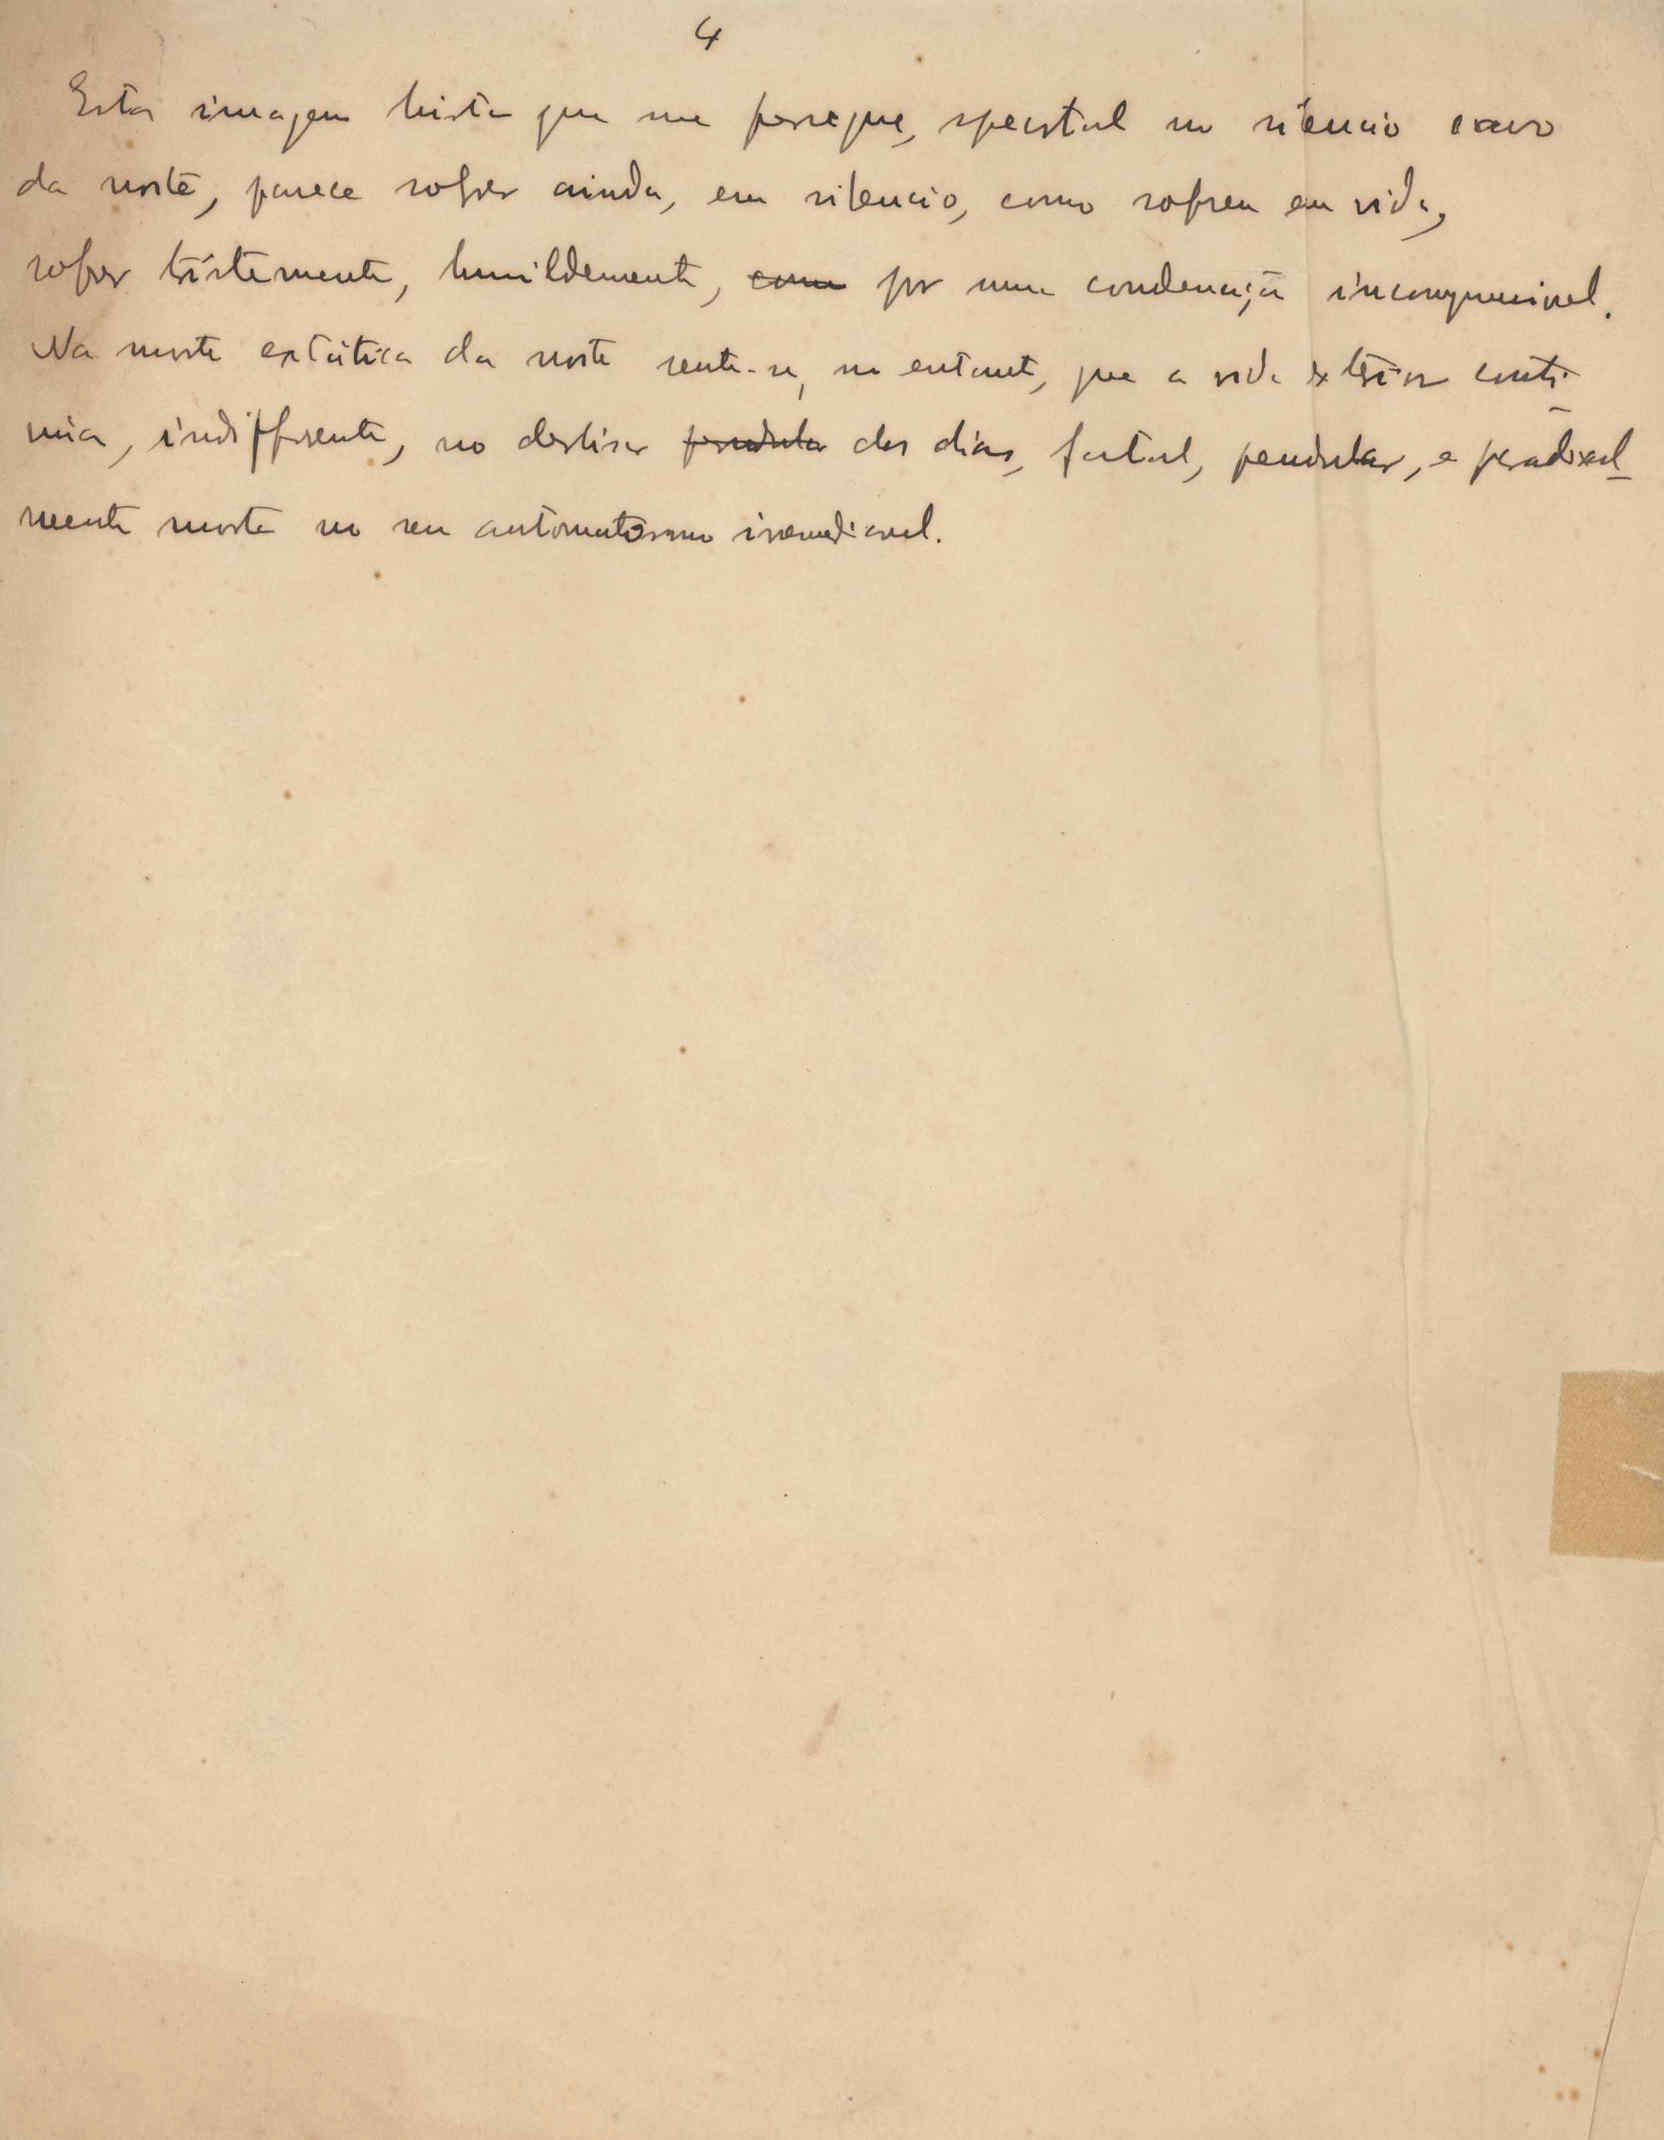 4
Esta imagem triste que me persegue, spectral no silencio cavo
da noite, parece sofrer ainda, em silencio, como sofreu em vida,
sofrer tristemente, humildemente, como por uma condenação incompreensivel.
Na morte extática da noite sente-se, no entanto, que a vida exterior conti-
núa, indifferente, no deslisar pendular dos dias, fatal, pendular, e paradoxal-
mente morta no seu automatismo irremediavel.